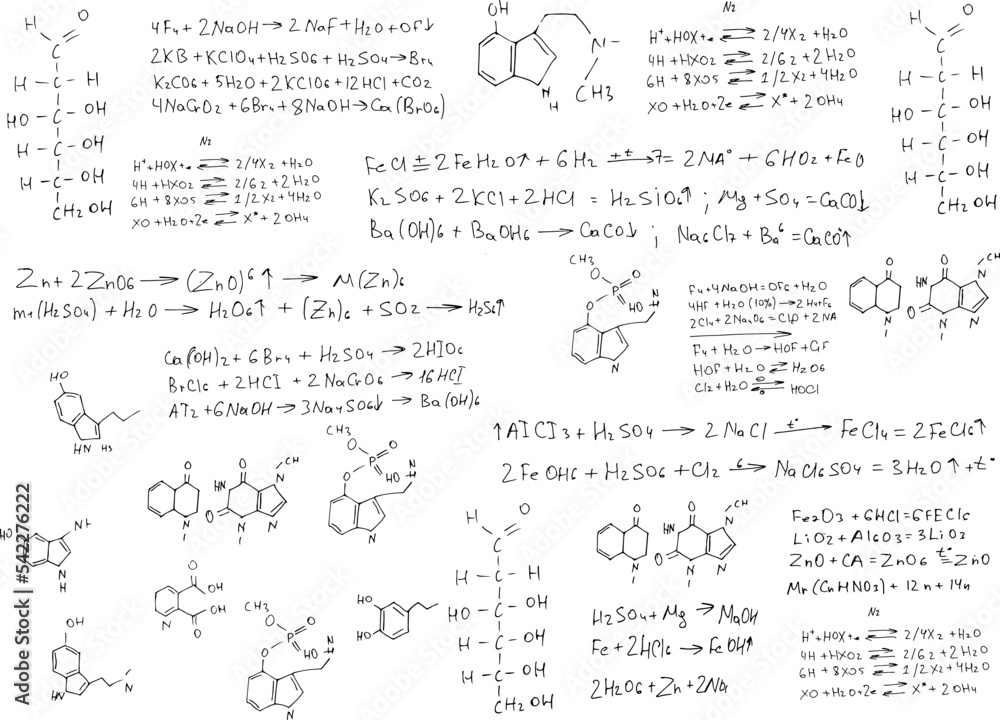 4F₄ + 2NaOH → 2NaF + H₂O + OF↓
2KB + KClO₄ + H₂SO6 + H₂SO₄ → Br₄
K₂CO6 + 5H₂O + 2KClO6 + 12HCl + CO2
4NaCrO2 + 6Br₄ + 8NaOH → Ca(BrO6)
H O
C
H – C – H
HO – C – OH
H – C – OH
H – C – OH
CH₂OH
N2
H⁺+HOX+e ⇌ 2/4X2 + H2O
4H + HXO2 ⇌ 2/6 2 + 2H2O
6H + 8XO5 ⇌ 1/2X2 + 4H2O
XO + H2O + 2e ⇌ X* + 2OH4
OH
N –
CH3
N
H
N2
H⁺+HOX+e ⇌ 2/4X2 + H2O
4H + HXO2 ⇌ 2/6 2 + 2H2O
6H + 8XO5 ⇌ 1/2X2 + 4H2O
XO + H2O + 2e ⇌ X* + 2OH4
H O
C
H – C – H
HO – C – OH
H – C – OH
H – C – OH
CH₂OH
FeCl ± 2FeH2O↑ + 6H2 +t→ 7= 2NA° + 6HO2 + FeO
K2SO6 + 2KCl + 2HCl = H2SiO6↑ ; Mg + SO4 = CaCO↓
Ba(OH)6 + BaOH6 → CaCO↓ ; Na6Cl7 + Ba⁶ = CaCO↑
Zn + 2ZnO6 → (ZnO)⁶↑ → M(Zn)6
m1(H2SO4) + H2O → H2O6↑ + (Zn)6 + SO2 → H2S6↑
Ca(OH)2 + 6Br4 + H2SO4 → 2HIO6
BrCl6 + 2HCI + 2NaCrO6 → 16HCI
AT2 + 6NaOH → 3Na4SO6↓ → Ba(OH)6
CH3
O O
P
O HO N H
N
F4+4NaOH=OF6+H2O
4HF+H2O(10%)→2H4+F6
2Cl4+2Na2O6=ClO+2NA
F4+H2O→HOF+GF
HOF+H2O⇌H2O6
Cl2+H2O⇌HOCl
O
N
O
HN
O N N
N
CH
HO
HN H3
↑AICI3 + H2SO4 → 2NaCl t°→ FeCl4 = 2FeCl6↑
2FeOH6 + H2SO6 + Cl2 6→ NaCl6SO4 = 3H2O↑ + t°
CH3
O O
P
O HO N H
N
O
N
O
HN
O N N
N
CH
HO
NH
N
H
O
OH
OH
O
N
HO
HO
OH
HN
N
CH3
O O
P
O HO N H
N
H O
C
H – C – H
HO – C – OH
H – C – OH
H – C – OH
CH₂OH
O
N
O
HN
O N N
N
CH
H2SO4 + Mg → MaOH
Fe + 2HCl6 → FeOH↑
2H2O6 + Zn + 2Na
Fe2O3 + 6HCl = 6FECl6
LiO2 + Al6O3 = 3LiO3
ZnO + CA = ZnO6 t°= ZnO
Mr(CnHNO3) + 12n + 14n
N2
H⁺+HOX+e ⇌ 2/4X2 + H2O
4H + HXO2 ⇌ 2/6 2 + 2H2O
6H + 8XO5 ⇌ 1/2X2 + 4H2O
XO + H2O + 2e ⇌ X* + 2OH4
Adobe Stock | #542276222
Adobe Stock